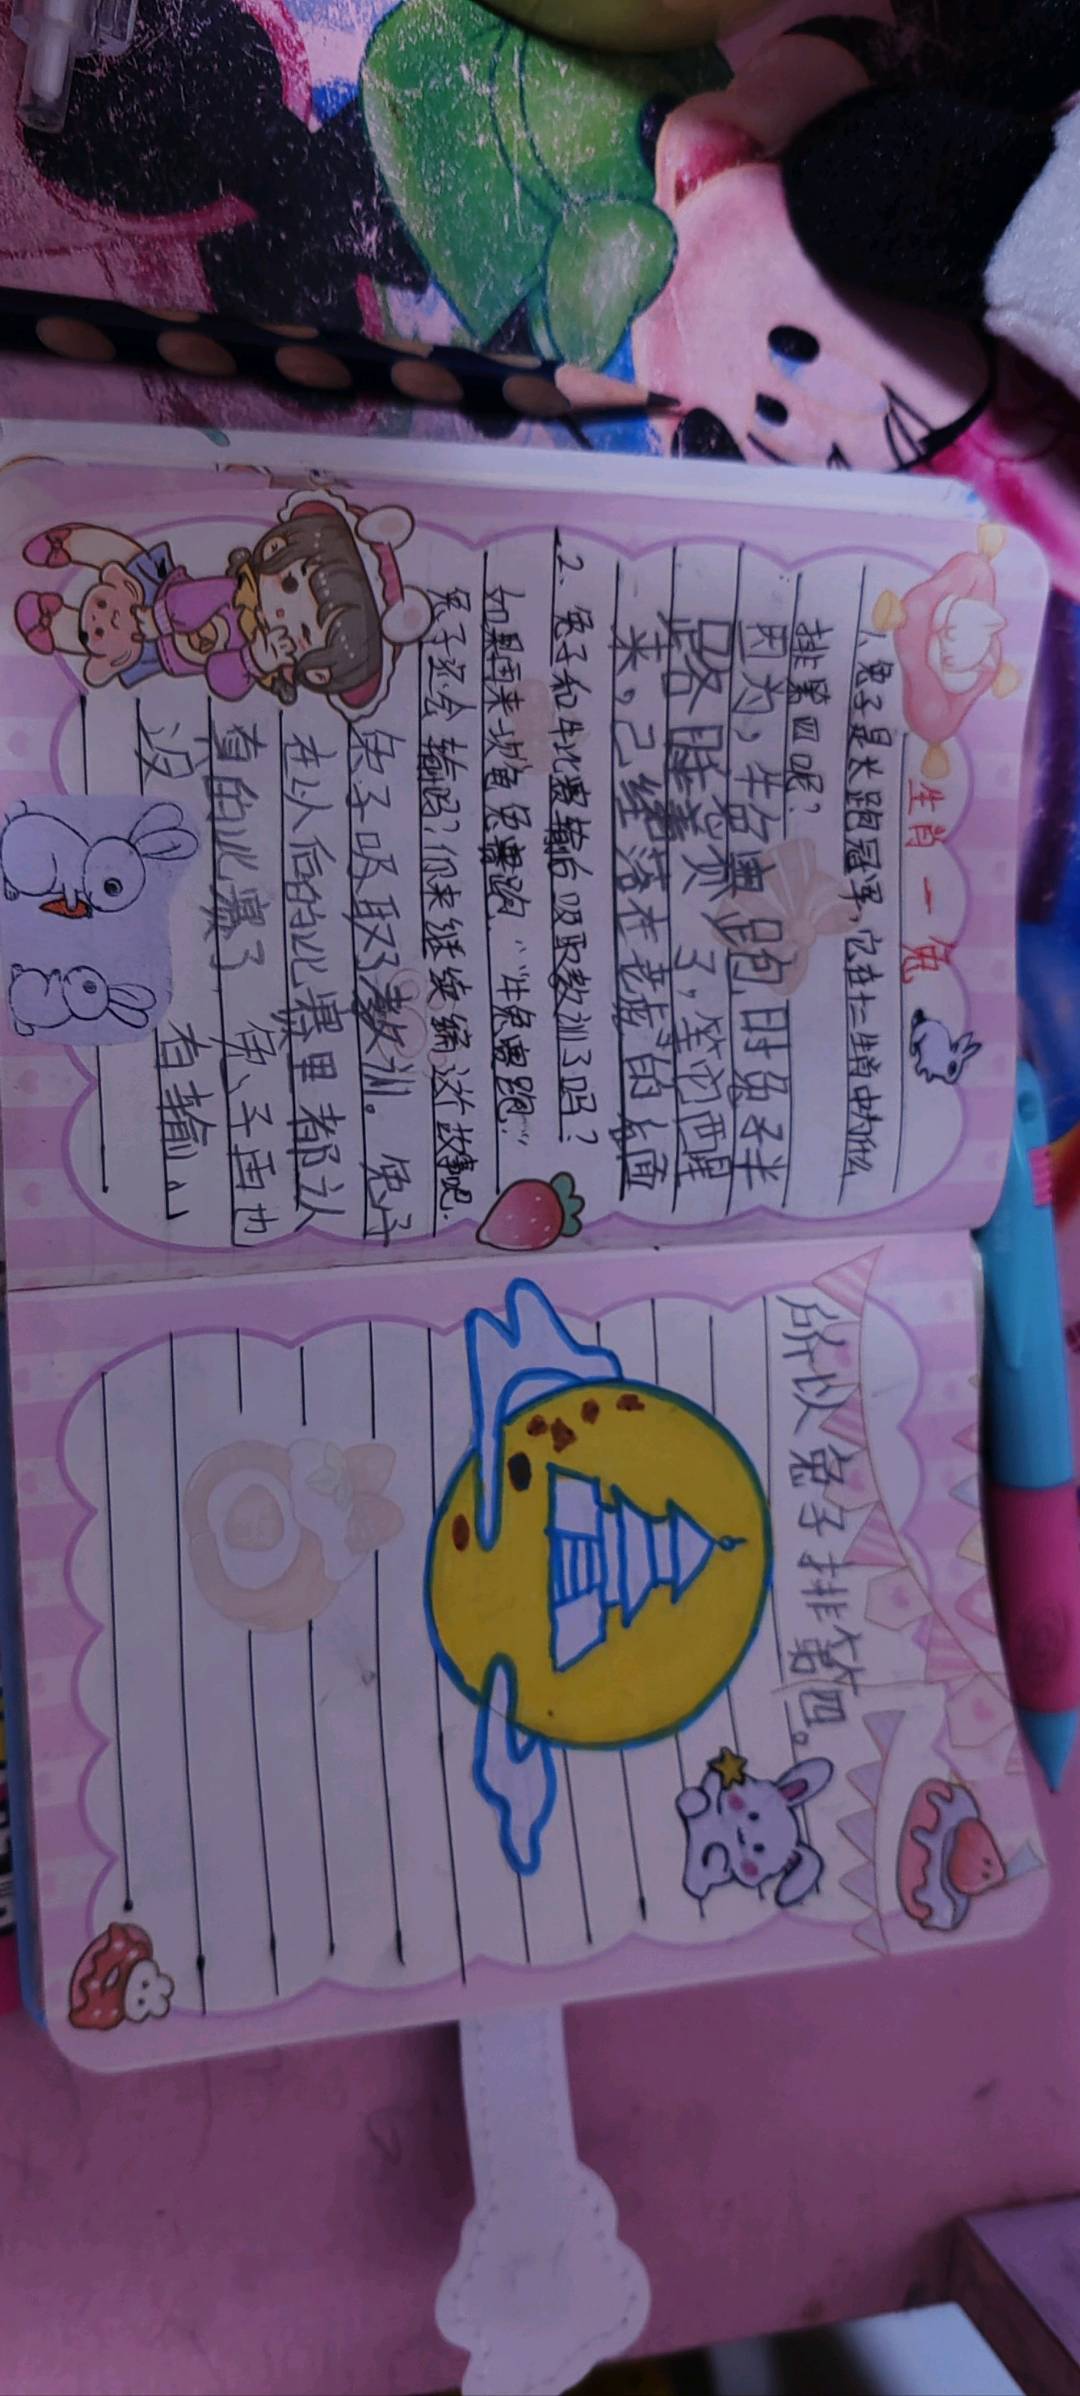 生肖一兔
1、兔子是长跑冠军,它在十二生肖中为什么
排第四呢?
因为,牛兔赛跑时兔子半
路睡着了,等它醒
来,己经落在老虎的后面
2.兔子和牛比赛输后吸取教训了吗?
如果再来一次龟兔赛跑.“牛兔赛跑.”
兔子还会输吗?你来继续编这个故事吧.
兔子吸取了教训。兔子
在以后的比赛里都认
真的比赛了,兔子再也
没有输
所以兔子排第四。